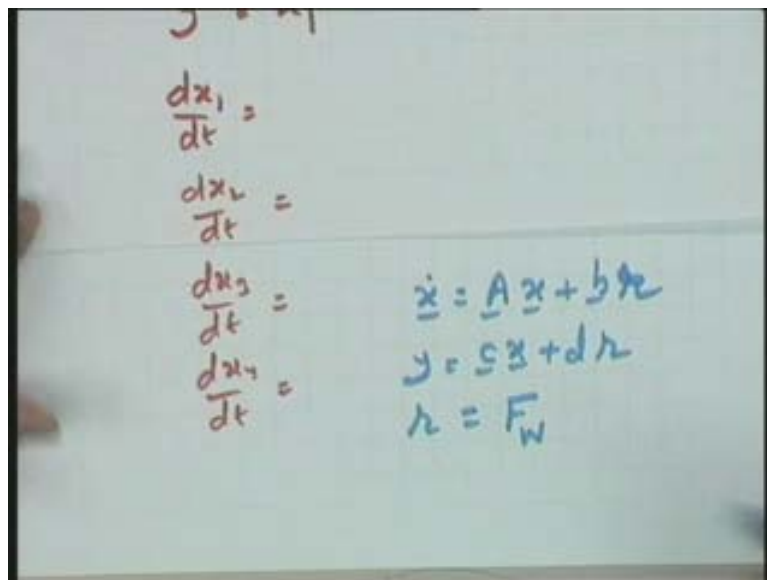 y = x₁
dx₁/dt =
dx₂/dt =
dx₃/dt =
dx₄/dt =
ẋ = A x + b r
y = c x + d r
r = F_W